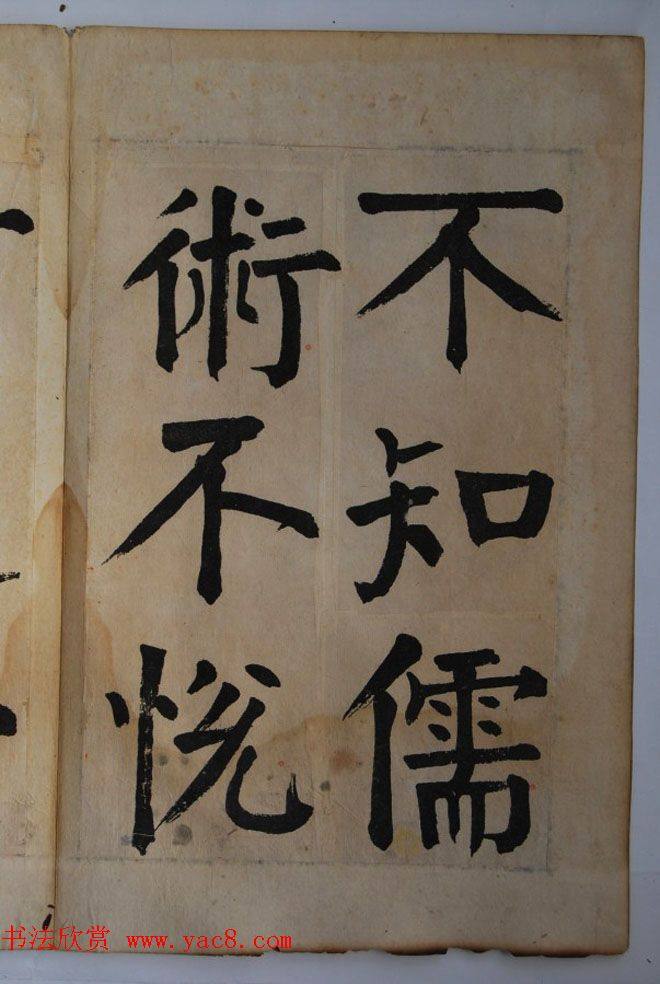 不知儒
術不悅
书法欣赏 www.yac8.com